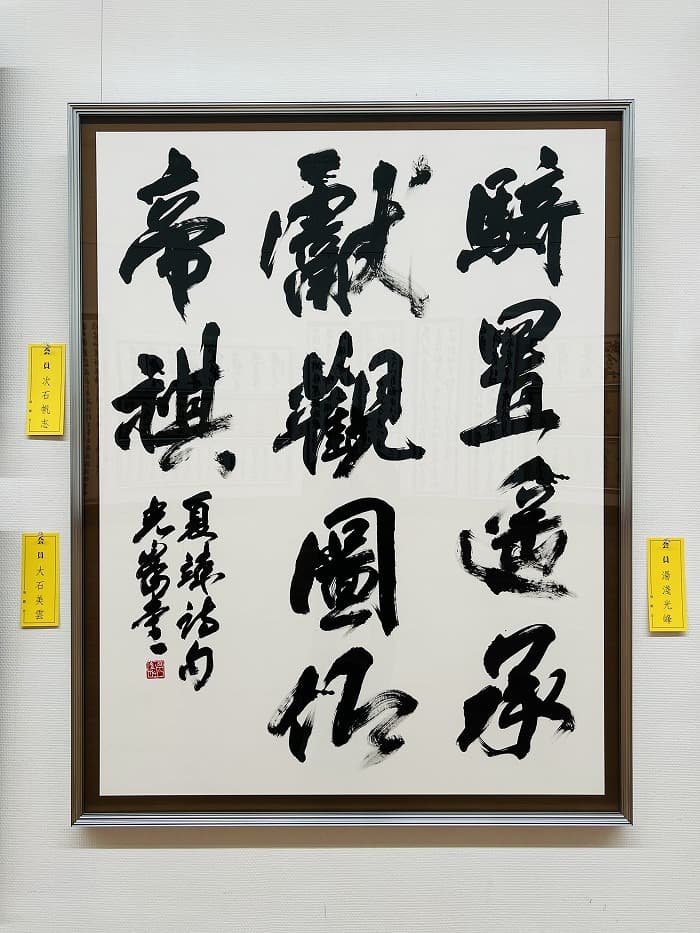 騎置遙承
獻觀圖仰
帝祺
夏竦詩句
光峯書
会員 湯淺光峰
会員 次石帆志
会員 大石美雲